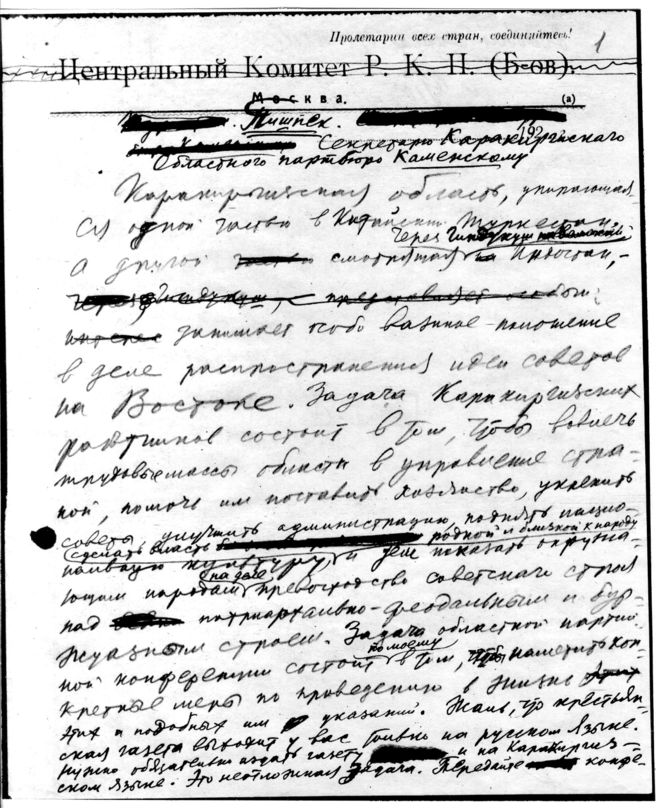 Пролетарии всех стран, соединяйтесь!
1
Центральный Комитет Р. К. П. (Б-ов).
Москва. (а)
Пишпек. 192
Секретарю Каракиргизского
Областного партбюро Каменскому
Каракиргизская область, упирающая-
ся одной частью в Китайский Туркестан,
через Гиндукуш
а другой смотрящая на Индостан, -
занимает особо важное положение
в деле распространения идеи советов
на Востоке. Задача Каракиргизских
работников состоит в том, чтобы вовлечь
трудовые массы области в управление стра-
ной, помочь им поставить хозяйство, укрепить
советы, улучшить администрацию, поднять нацио-
сделать власть родной и близкой к народу
нальную культуру, и показать окружа-
на деле
ющим народам превосходство советского строя
над патриархально-феодальным и бур-
жуазным строем. Задача областной партий-
по моему
ной конференции состоит в том, чтобы наметить кон-
кретные меры по проведению в жизнь
этих и подобных им указаний. Жаль, что крестьян-
ская газета выходит у вас только на русском языке.
Нужно обязательно издать газету и на Каракиргиз-
ском языке. Это неотложная задача. Передайте конфе-